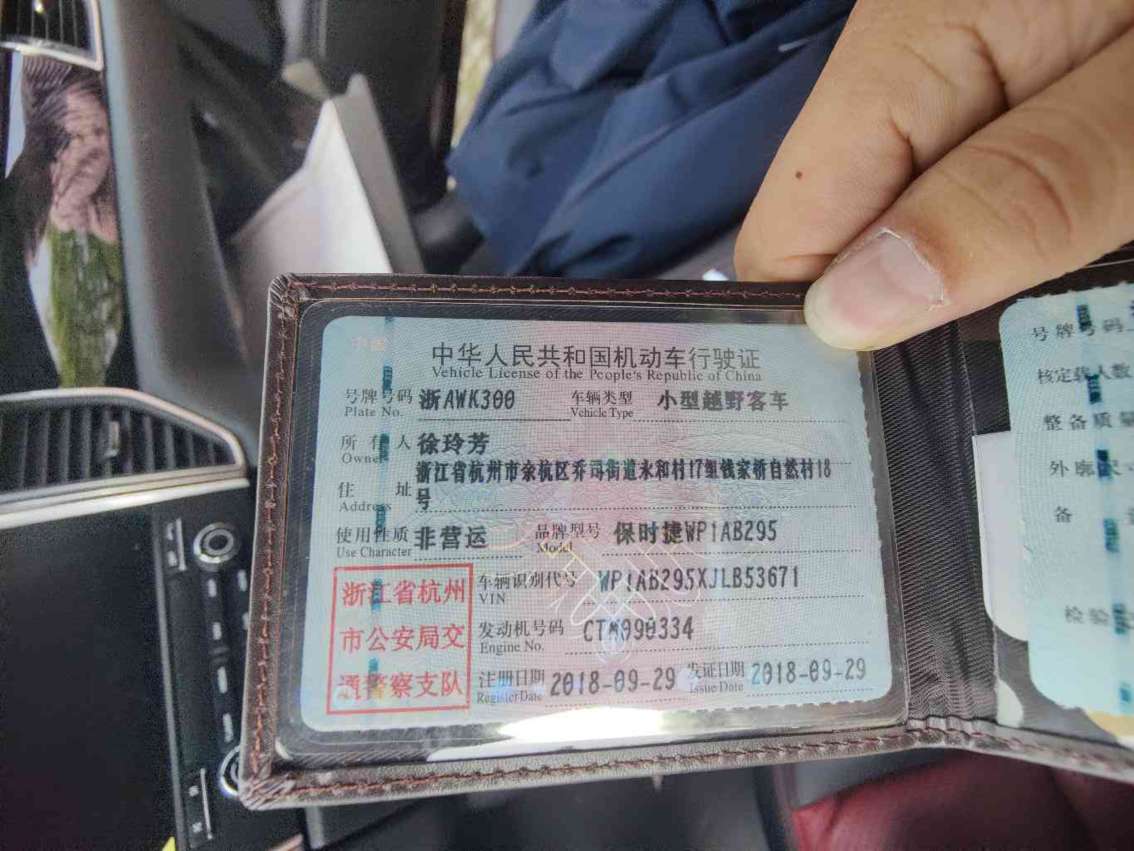 中华人民共和国机动车行驶证
Vehicle License of the People's Republic of China
号牌号码 浙AWK300 车辆类型 小型越野客车
Plate No. Vehicle Type
所有人 徐玲芳
Owner
住址 浙江省杭州市余杭区乔司街道永和村17组钱家桥自然村18号
Address
使用性质 非营运 品牌型号 保时捷WP1AB295
Use Character Model
浙江省杭州
市公安局交
通警察支队
车辆识别代号 WP1AB295XJLB53671
VIN
发动机号码 CTM090334
Engine No.
注册日期 2018-09-29 发证日期 2018-09-29
Register Date Issue Date
号牌号码
核定载人数
整备质量
外廓尺寸
备
检验